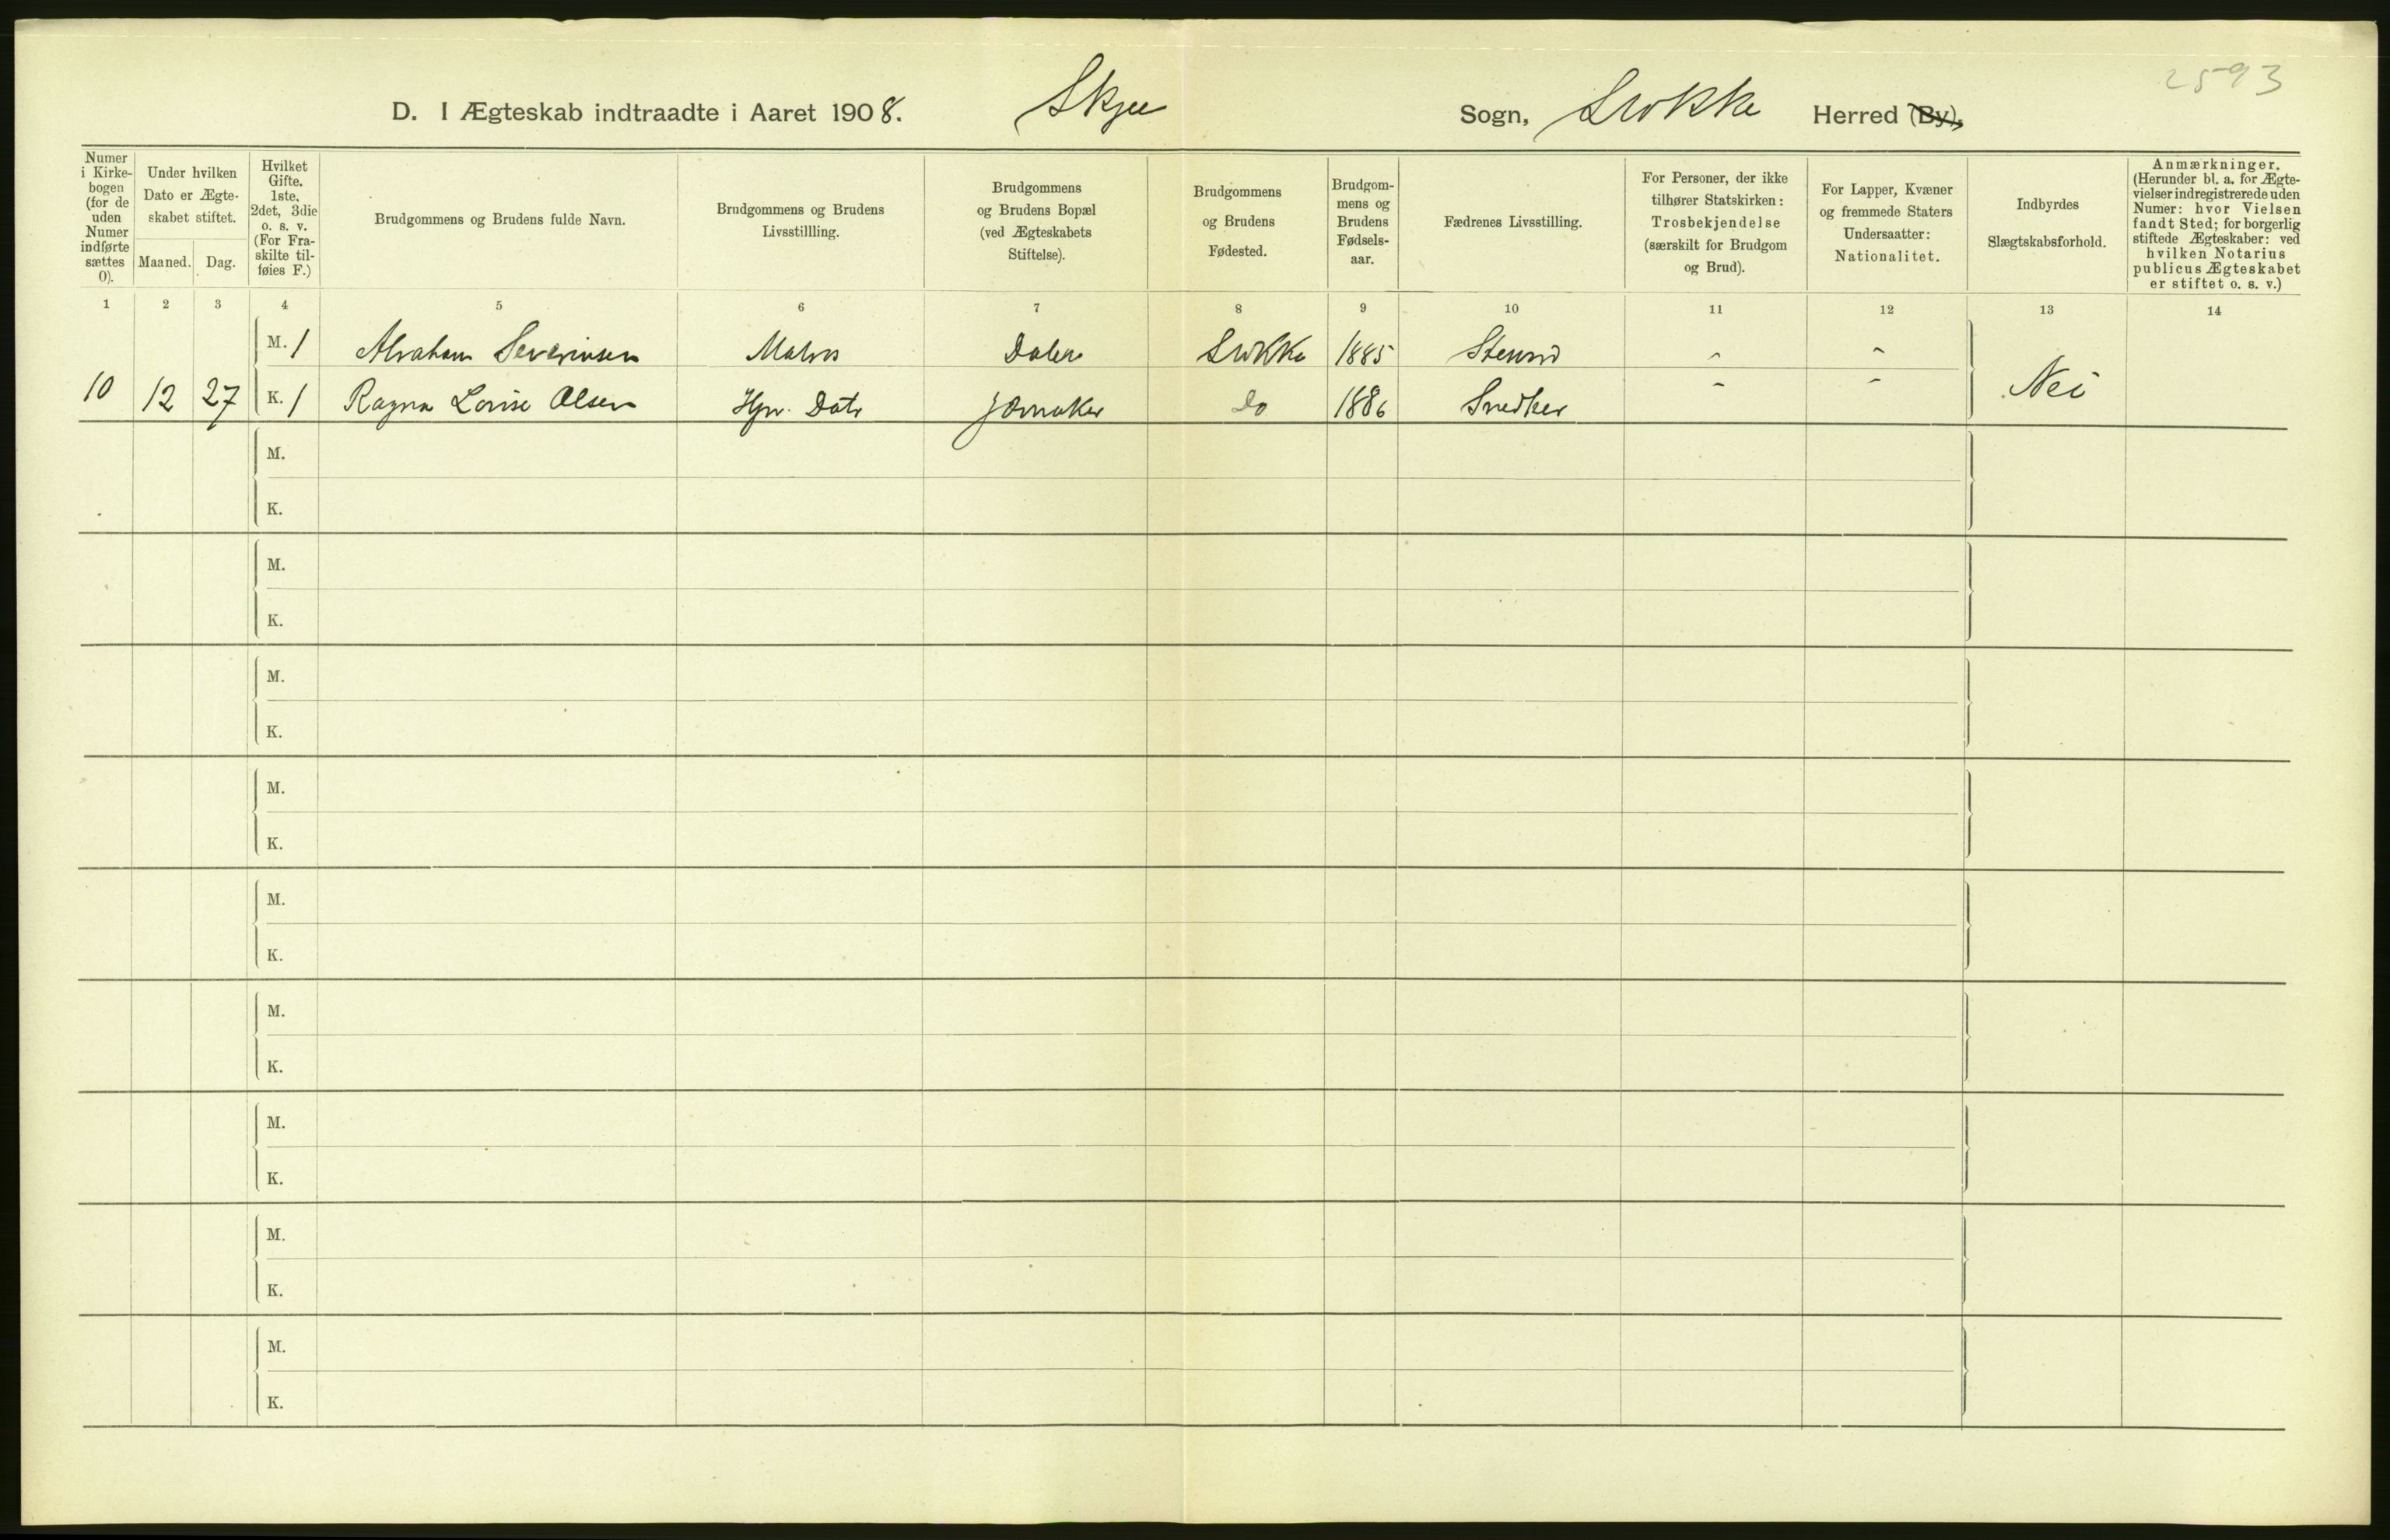 2593
D. I Ægteskab indtraadte i Aaret 1908. Skjee Sogn, Stokke Herred (By),
Numer i Kirke-bogen (for de uden Numer indførte sættes 0).
Under hvilken Dato er Ægte-skabet stiftet.
Maaned. Dag.
Hvilket Gifte. 1ste, 2det, 3die o. s. v. (For Fra-skilte til-føies F.)
Brudgommens og Brudens fulde Navn.
Brudgommens og Brudens Livsstillling.
Brudgommens og Brudens Bopæl (ved Ægteskabets Stiftelse).
Brudgommens og Brudens Fødested.
Brudgom-mens og Brudens Fødsels-aar.
Fædrenes Livsstilling.
For Personer, der ikke tilhører Statskirken: Trosbekjendelse (særskilt for Brudgom og Brud).
For Lapper, Kvæner og fremmede Staters Undersaatter: Nationalitet.
Indbyrdes Slægtskabsforhold.
Anmærkninger. (Herunder bl. a. for Ægte-vielser indregistrerede uden Numer: hvor Vielsen fandt Sted; for borgerlig stiftede Ægteskaber: ved hvilken Notarius publicus Ægteskabet er stiftet o. s. v.)
1 2 3 4 5 6 7 8 9 10 11 12 13 14
M. 1 Abraham Severinsen Matros Dalen Stokke 1885 - -
10 12 27 K. 1 Ragna Lovise Olsen Hjv. Datr Jørnaker Do 1886 Snedker - - Nei
M.
K.
M.
K.
M.
K.
M.
K.
M.
K.
M.
K.
M.
K.
M.
K.
M.
K.